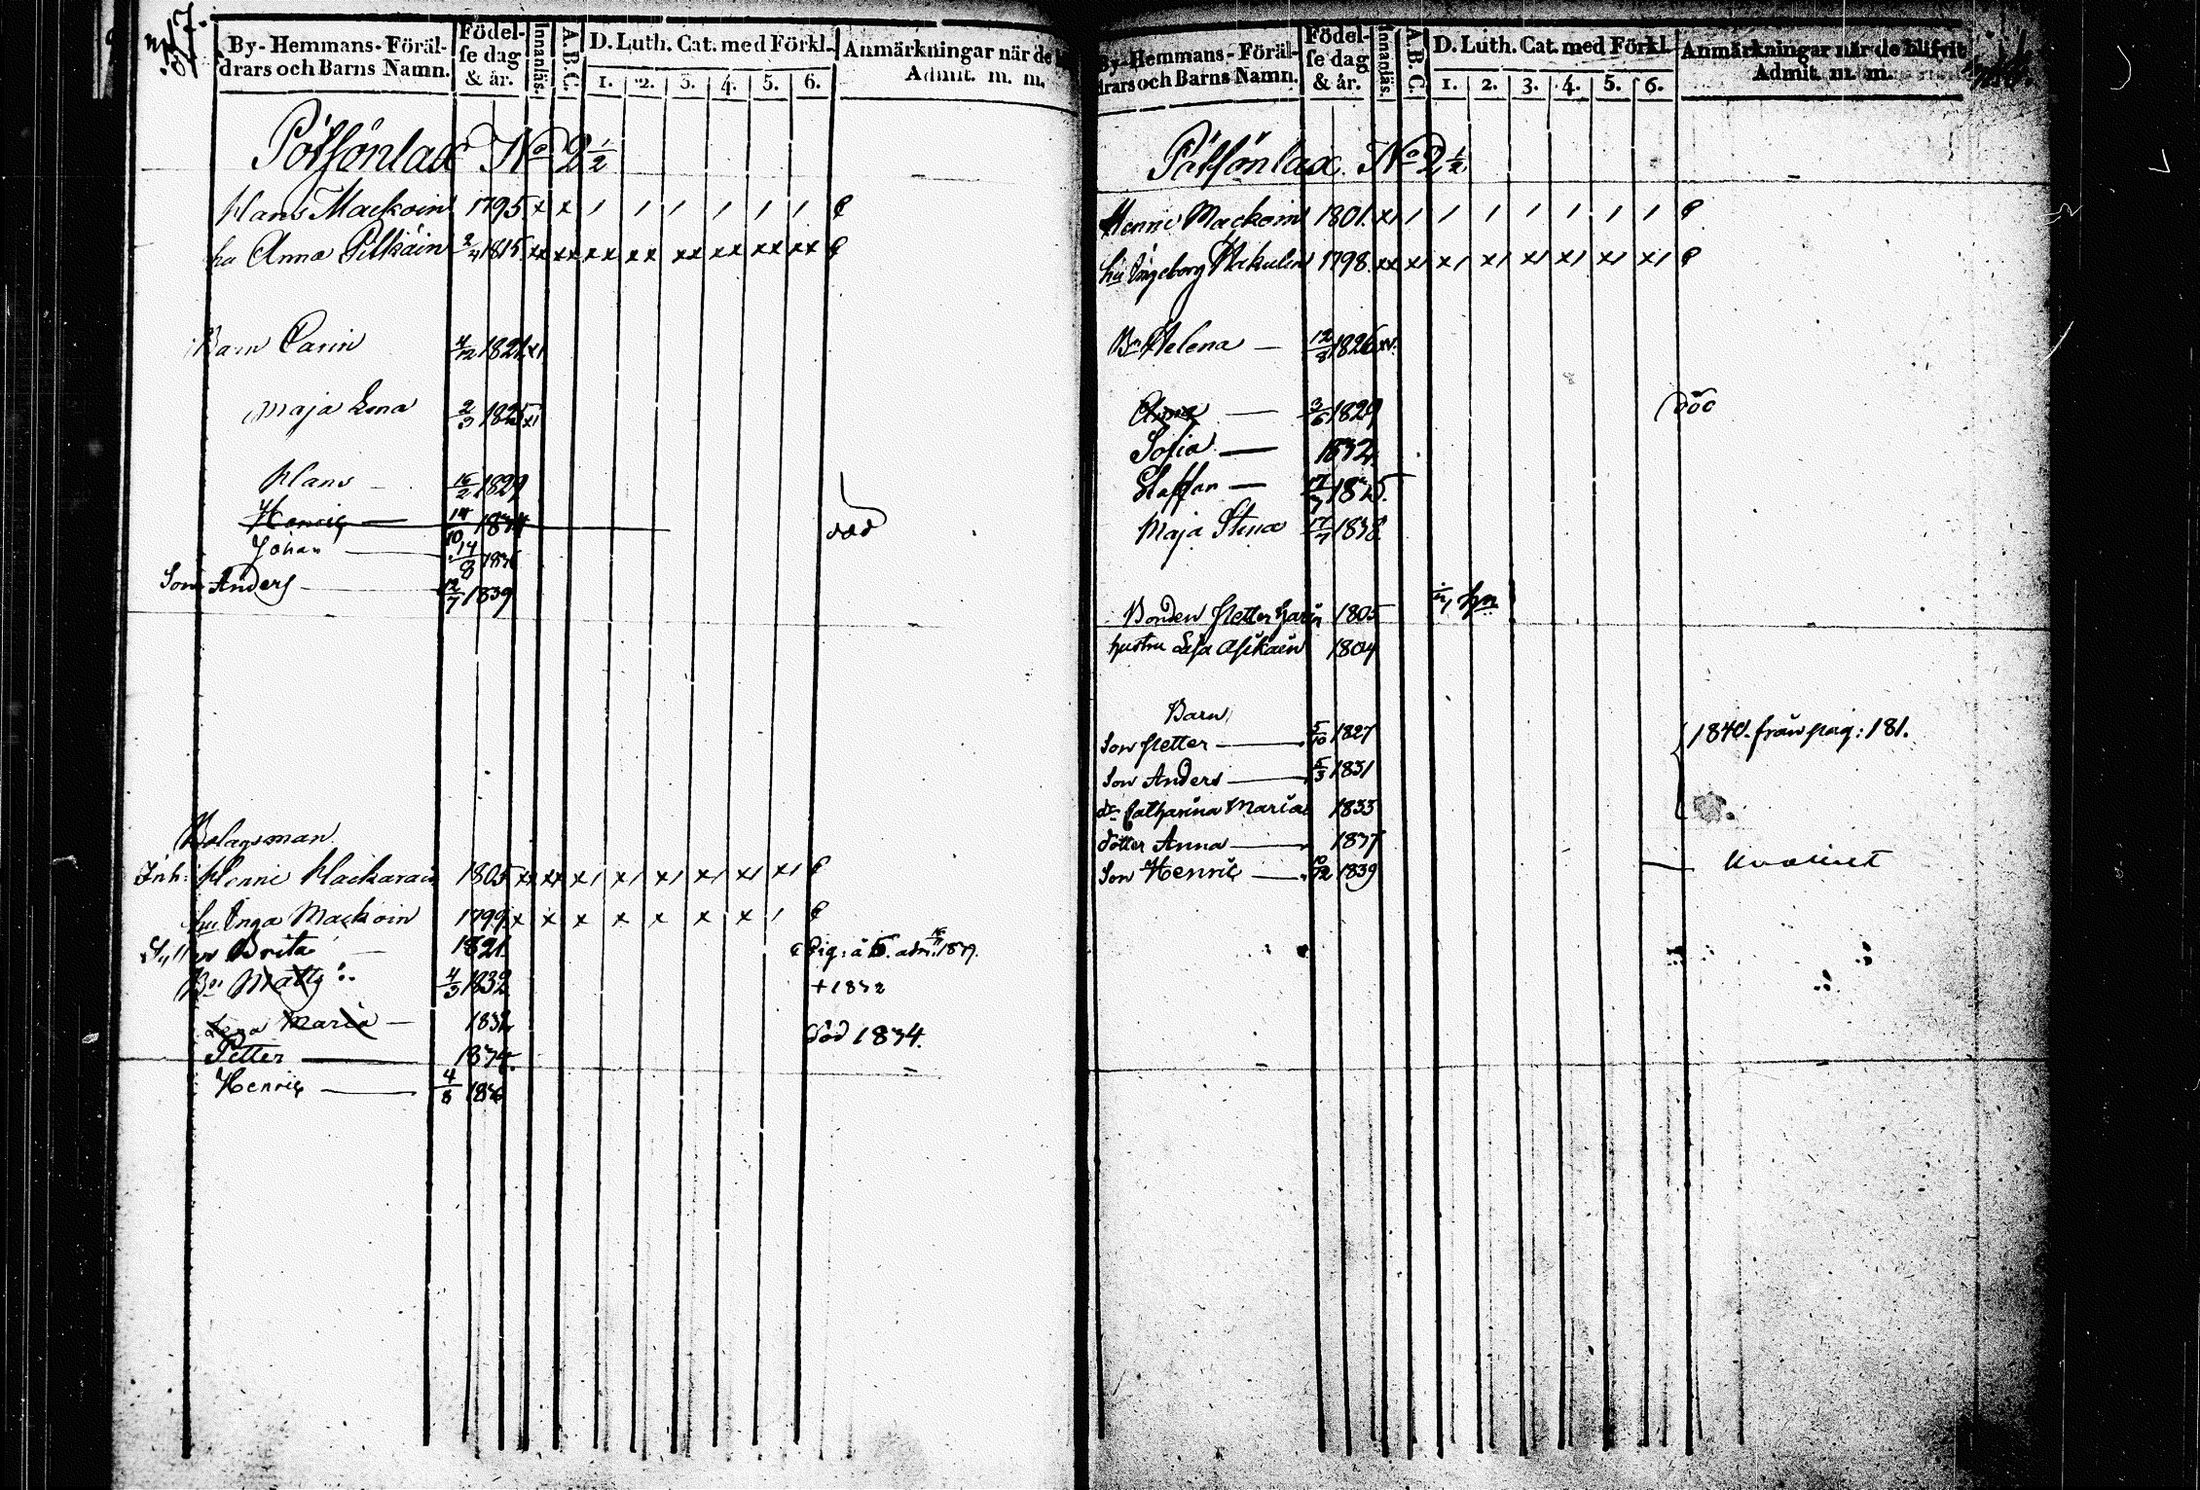 By-Hemmans-Föräl-
drars och Barns Namn.
Födel-
se dag
& år.
Innanläs.
A.B.C.
D. Luth. Cat. med Förkl.
1. 2. 3. 4. 5. 6.
Anmärkningar när de
Admit. m. m.
Pötsönlax No 2 1/2
Hans Mackoin 1795 x x / / / / / /
hu Anna Pitkäin 2/4 1815 xx xx xx xx xx xx xx xx
Barn Carin 4/12 1821 x/
Maja Lena 2/3 1825 x/
Hans 16/2 1829
Henric 14/10 1834 död
Johan 14/8 1836
Son Anders 12/7 1839
Bolagsman
Inh: Henric 1805 x/ x/ x/ x/ x/ x/
hu Inga Mackoin 1799 x x x x x x x /
Brita 1821
Bn Matts 4/3 1832 + 1832
Lena Maria död 1834.
Petter 1834
Henric 4/8 1836
By-Hemmans-Föräl-
drars och Barns Namn.
Födel-
se dag
& år.
Innanläs.
A.B.C.
D. Luth. Cat. med Förkl.
1. 2. 3. 4. 5. 6.
Anmärkningar när de blifvit
Admit. m. m.
Pötsönlax No 2 1/2
Henric Mackoin 1801 x/ / / / / / / /
hu Ingeborg 1798 xx x/ x/ x/ x/ x/ x/ x/
Bn Helena — 12/8 1826
Anna — 3/6 1829 död
Sofia — 1832
Staffan — 17/7 1835
Maja Stina 17/7 1838
Bonden Petter 1805
hustru Lisa Asikain 1804
Barn
Son Petter — 5/10 1827 1840 från pag: 181.
Son Anders — 5/3 1831
dr Catharina Maria 1833
dotter Anna — 1837
Son Henric — 1839